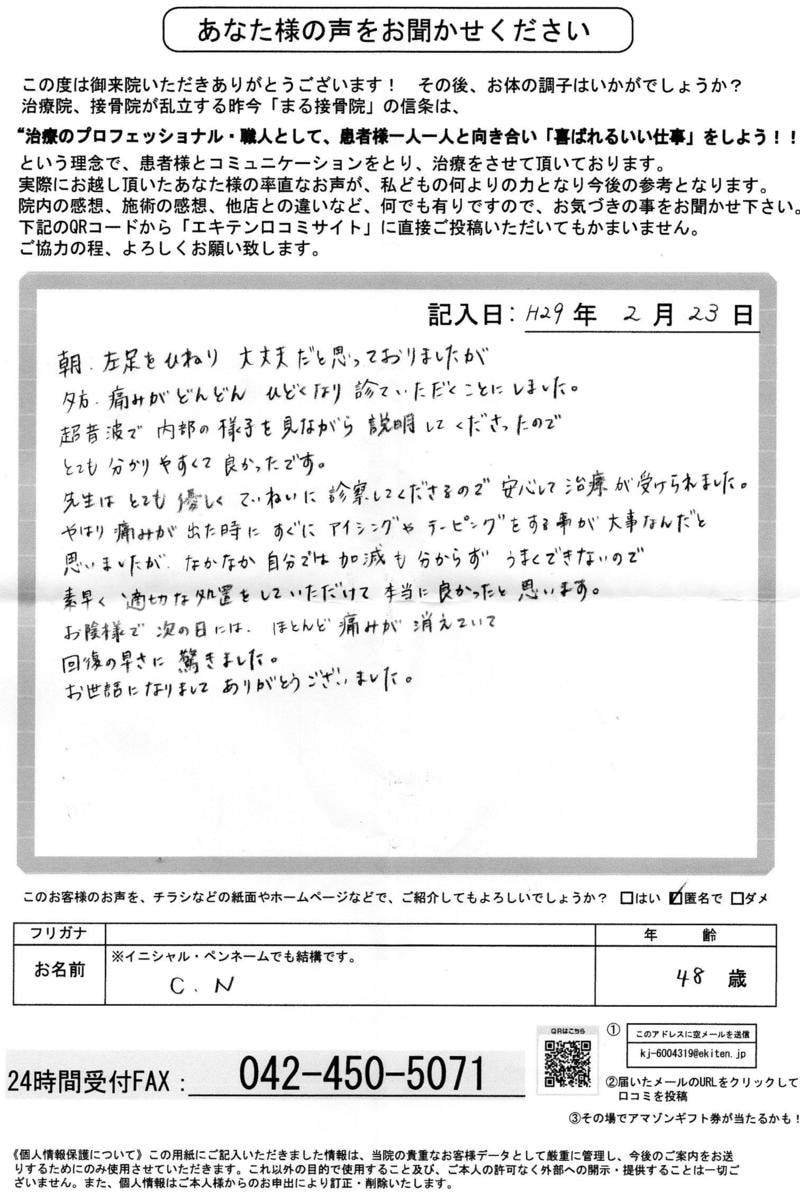 あなた様の声をお聞かせください
この度は御来院いただきありがとうございます！ その後、お体の調子はいかがでしょうか？
治療院、接骨院が乱立する昨今「まる接骨院」の信条は、
“治療のプロフェッショナル・職人として、患者様一人一人と向き合い「喜ばれるいい仕事」をしよう！！
という理念で、患者様とコミュニケーションをとり、治療をさせて頂いております。
実際にお越し頂いたあなた様の率直なお声が、私どもの何よりの力となり今後の参考となります。
院内の感想、施術の感想、他店との違いなど、何でも有りですので、お気づきの事をお聞かせ下さい。
下記のQRコードから「エキテン口コミサイト」に直接ご投稿いただいてもかまいません。
ご協力の程、よろしくお願い致します。
記入日：H29年 2月 23日
朝、左足をひねり 大丈夫だと思っておりましたが
夕方、痛みがどんどん ひどくなり 診ていただくことにしました。
超音波で 内部の様子を見ながら 説明してくださったので
とても 分かりやすくて 良かったです。
先生は とても 優しく ていねいに 診察してくださるので 安心して 治療が受けられました。
やはり 痛みが 出た時に すぐに アイシングや テーピングをする事が 大事なんだと
思いましたが、なかなか 自分では 加減も 分からず うまくできないので
素早く 適切な処置をしていただけて 本当に 良かったと 思います。
お陰様で 次の日には、ほとんど 痛みが 消えていて
回復の早さに 驚きました。
お世話になりまして ありがとうございました。
このお客様のお声を、チラシなどの紙面やホームページなどで、ご紹介してもよろしいでしょうか？ □はい ☑匿名で □ダメ
フリガナ 年 齢
お名前 ※イニシャル・ペンネームでも結構です。
C. N 48 歳
QRはこちら ① このアドレスに空メールを送信
kj-6004319@ekiten.jp
24時間受付FAX： 042-450-5071
②届いたメールのURLをクリックして
口コミを投稿
③その場でアマゾンギフト券が当たるかも！
《個人情報保護について》この用紙にご記入いただきました情報は、当院の貴重なお客様データとして厳重に管理し、今後のご案内をお送
りするためにのみ使用させていただきます。これ以外の目的で使用すること及び、ご本人の許可なく外部への開示・提供することは一切ご
ざいません。また、個人情報はご本人様からのお申出により訂正・削除いたします。